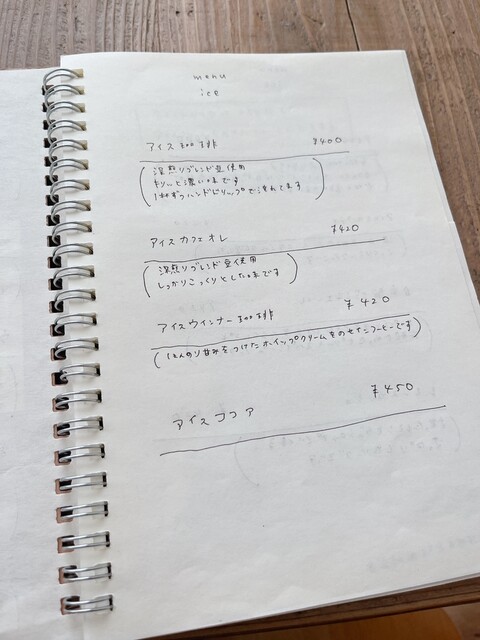 menu
ice
アイス珈琲 ¥400
(深煎りブレンド豆使用
キリッと濃い味です
1杯ずつハンドドリップで淹れてます)
アイスカフェオレ ¥420
(深煎りブレンド豆使用
しっかりこっくりとした味です)
アイスウインナー珈琲 ¥420
(ほんのり甘みをつけたホイップクリームをのせたコーヒーです)
アイスココア ¥450